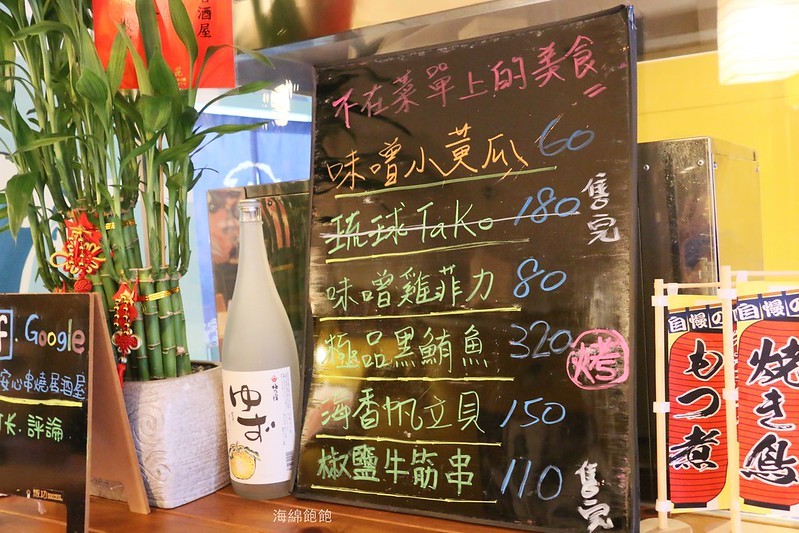 酒屋
不在菜單上的美食
味噌小黃瓜 60
琉球TaKo 180 售完
味噌雞菲力 80
極品黑鮪魚 320 烤
海香帆立貝 150
椒鹽牛筋串 110 售完
f. Google
安心串燒居酒屋
評論
ゆず
自慢の
もつ煮
自慢の
焼き鳥
海綿飽飽